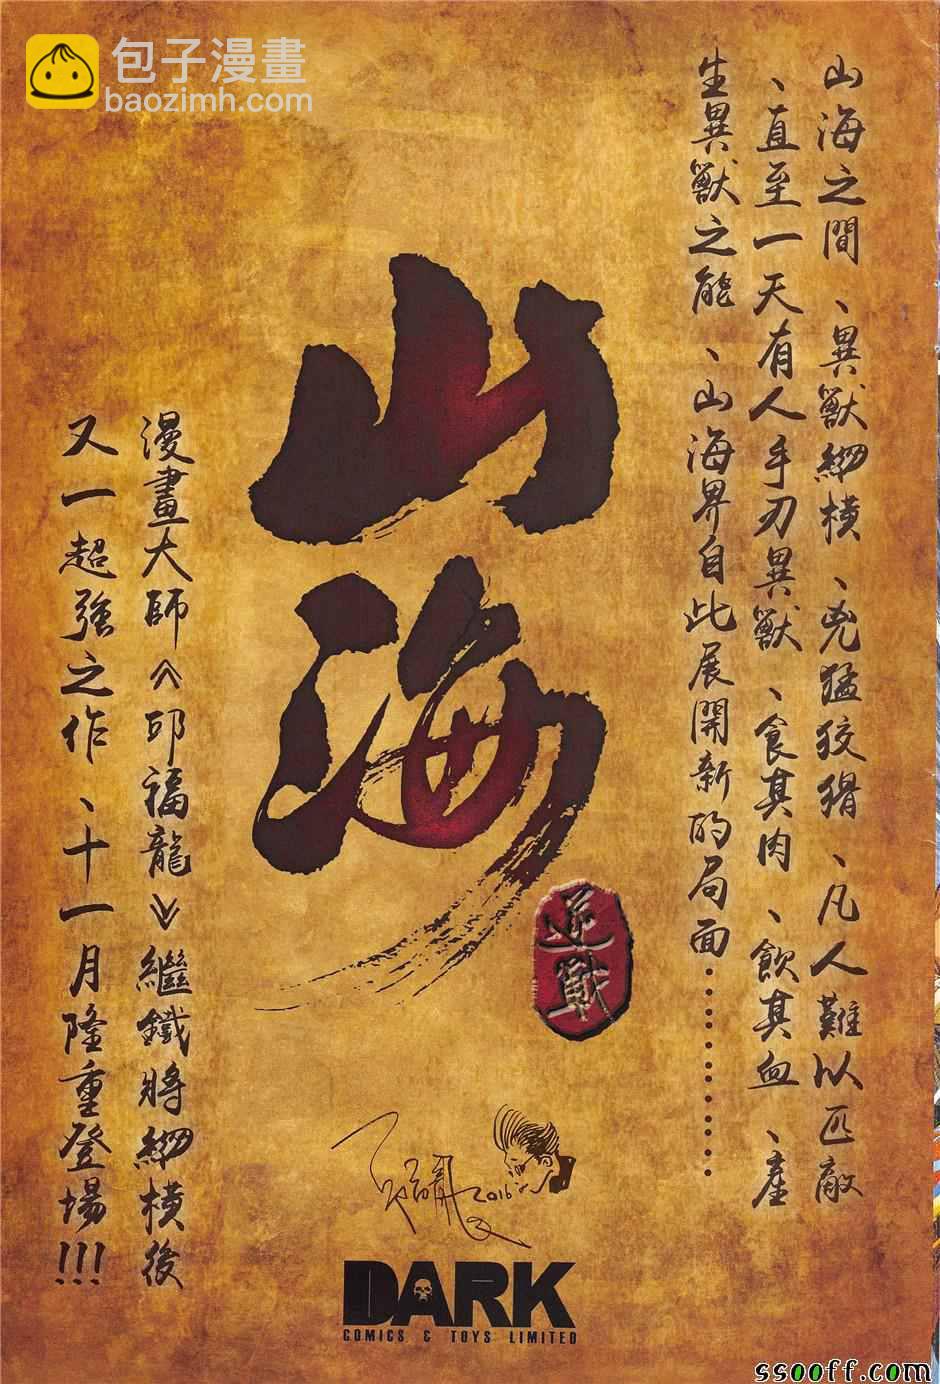 包子漫畫
baozimh.com
山海之間、異獸縱橫、兇猛狡猾、凡人難以匹敵
、直至一天有人手刃異獸、食其肉、飲其血、產
生異獸之能、山海界自此展開新的局面…………
山海
逆戰
漫畫大師《邱福龍》繼鐵將縱橫後
又一超強之作、十一月隆重登場!!!
2016
DARK
COMICS & TOYS LIMITED
ssooff.com